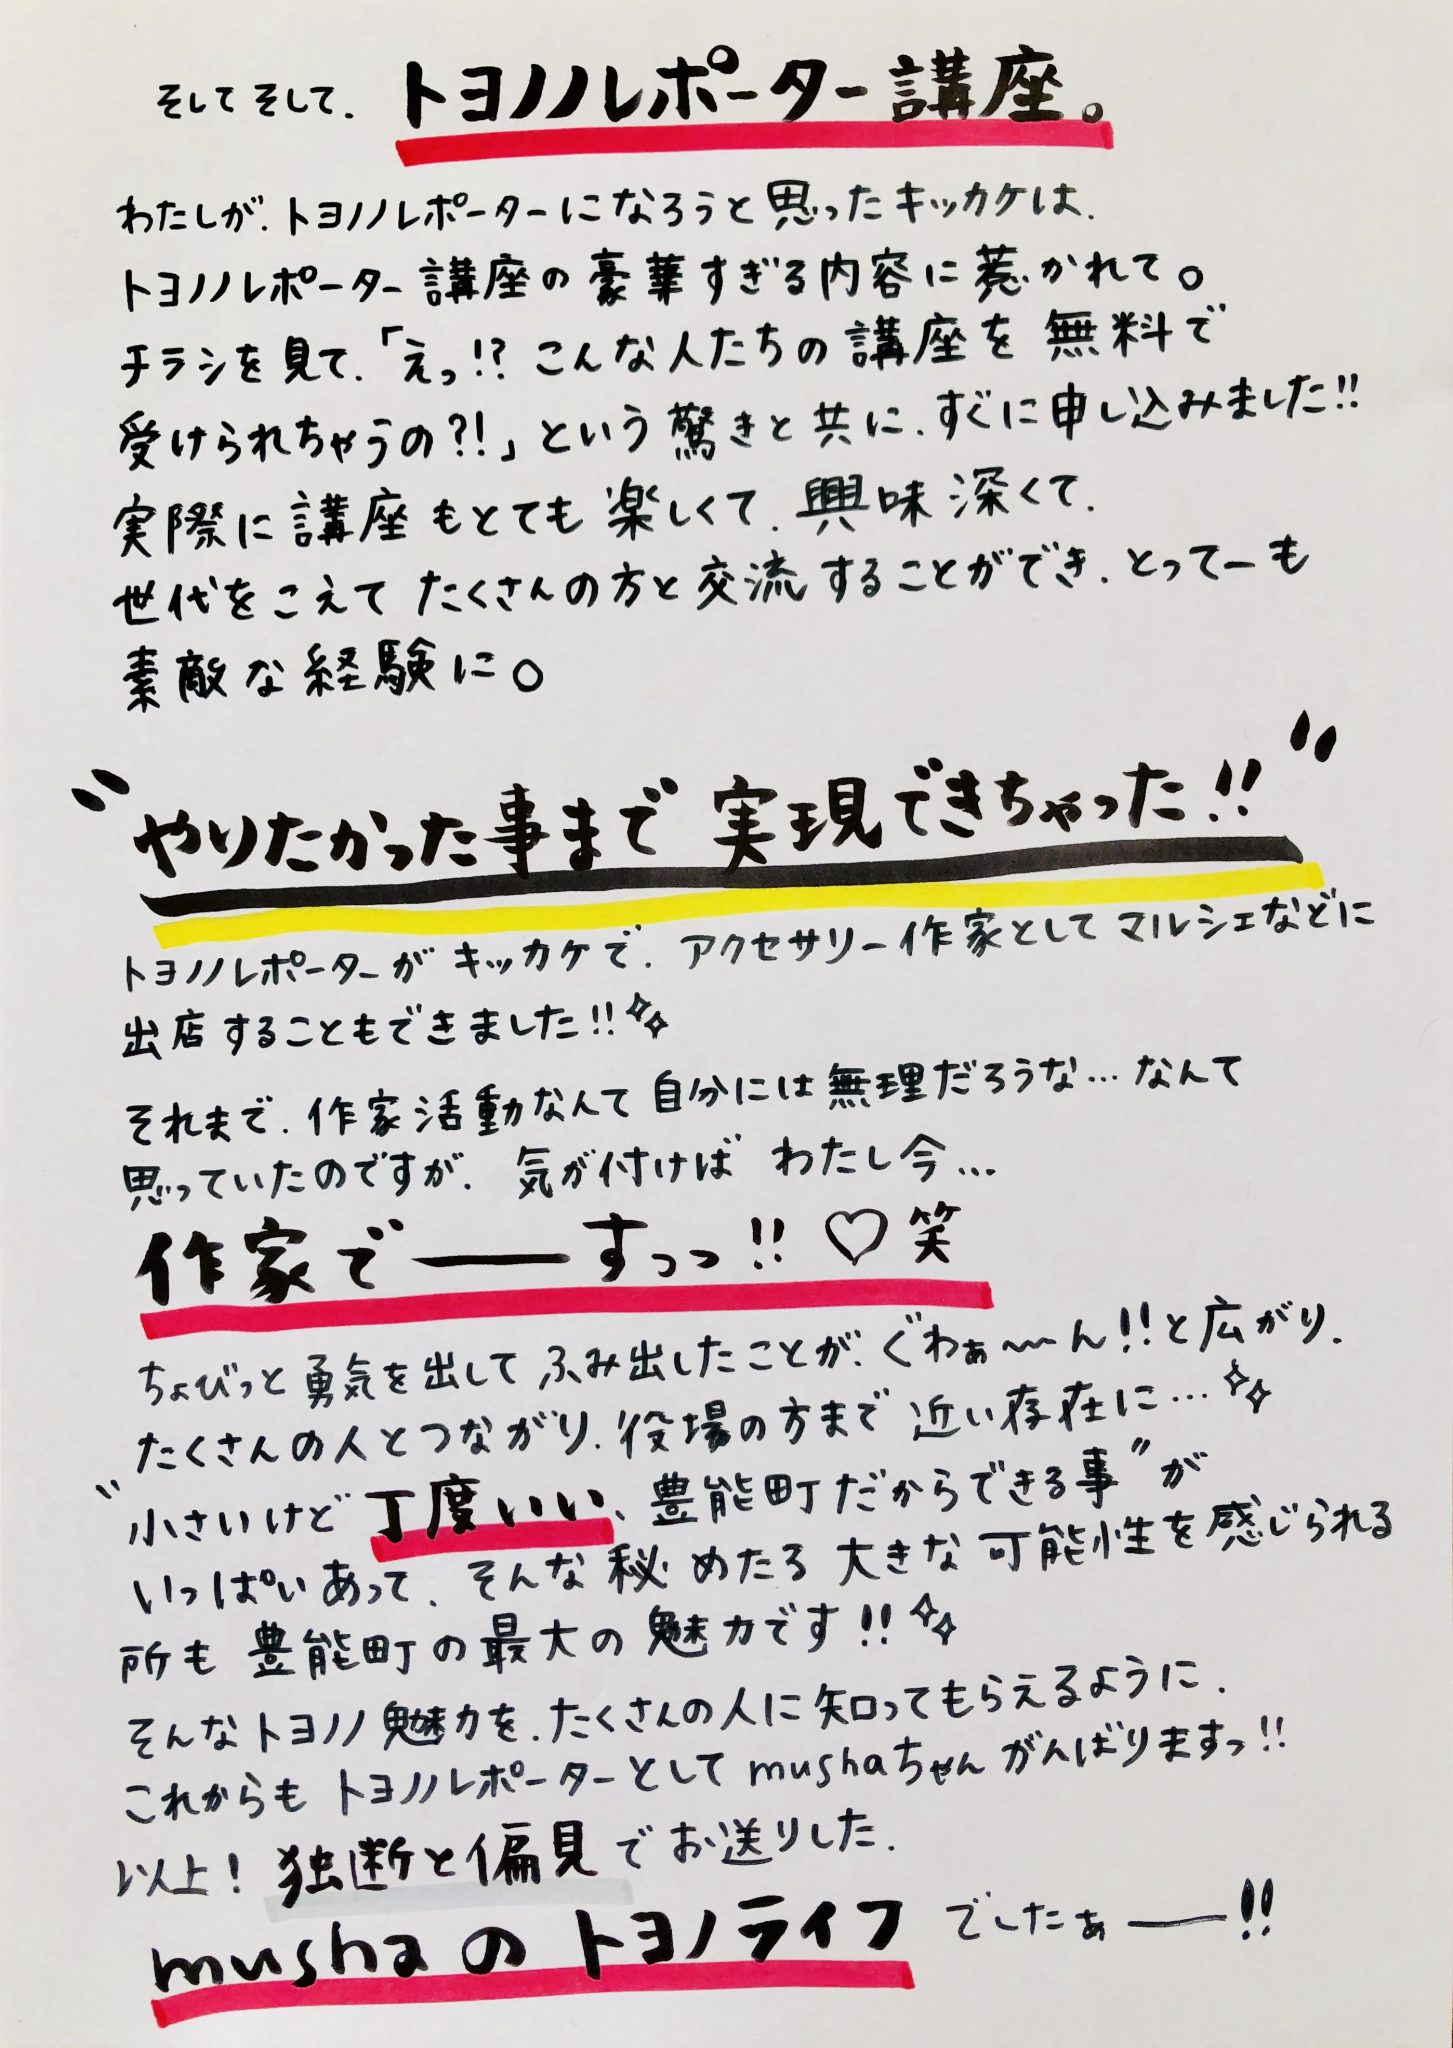 そしてそして、トヨノノレポーター講座。
わたしが、トヨノノレポーターになろうと思ったキッカケは、
トヨノノレポーター講座の豪華すぎる内容に惹かれて。
チラシを見て、「えっ!?こんな人たちの講座を無料で
受けられちゃうの?!」という驚きと共に、すぐに申し込みました!!
実際に講座もとても楽しくて、興味深くて、
世代をこえてたくさんの方と交流することができ、とってーも
素敵な経験に。
"やりたかった事まで実現できちゃった!!"
トヨノノレポーターがキッカケで、アクセサリー作家としてマルシェなどに
出店することもできました!!
それまで、作家活動なんて自分には無理だろうな…なんて
思っていたのですが、気が付けばわたし今…
作家でーーすっっ!!♡笑
ちょびっと勇気を出してふみ出したことが、ぐわぁ〜〜ん!!と広がり、
たくさんの人とつながり、役場の方まで近い存在に…
"小さいけど丁度いい、豊能町だからできる事"が
いっぱいあって、そんな秘めたる大きな可能性を感じられる
所も豊能町の最大の魅力です!!
そんなトヨノノ魅力を、たくさんの人に知ってもらえるように、
これからもトヨノノレポーターとしてmushaちゃんがんばりますっ!!
以上!独断と偏見でお送りした、
mushaのトヨノライフでしたぁー!!